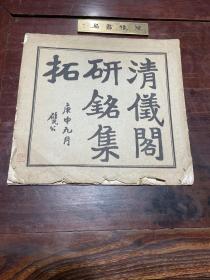 清儀閣
研銘集
拓
庚申九月